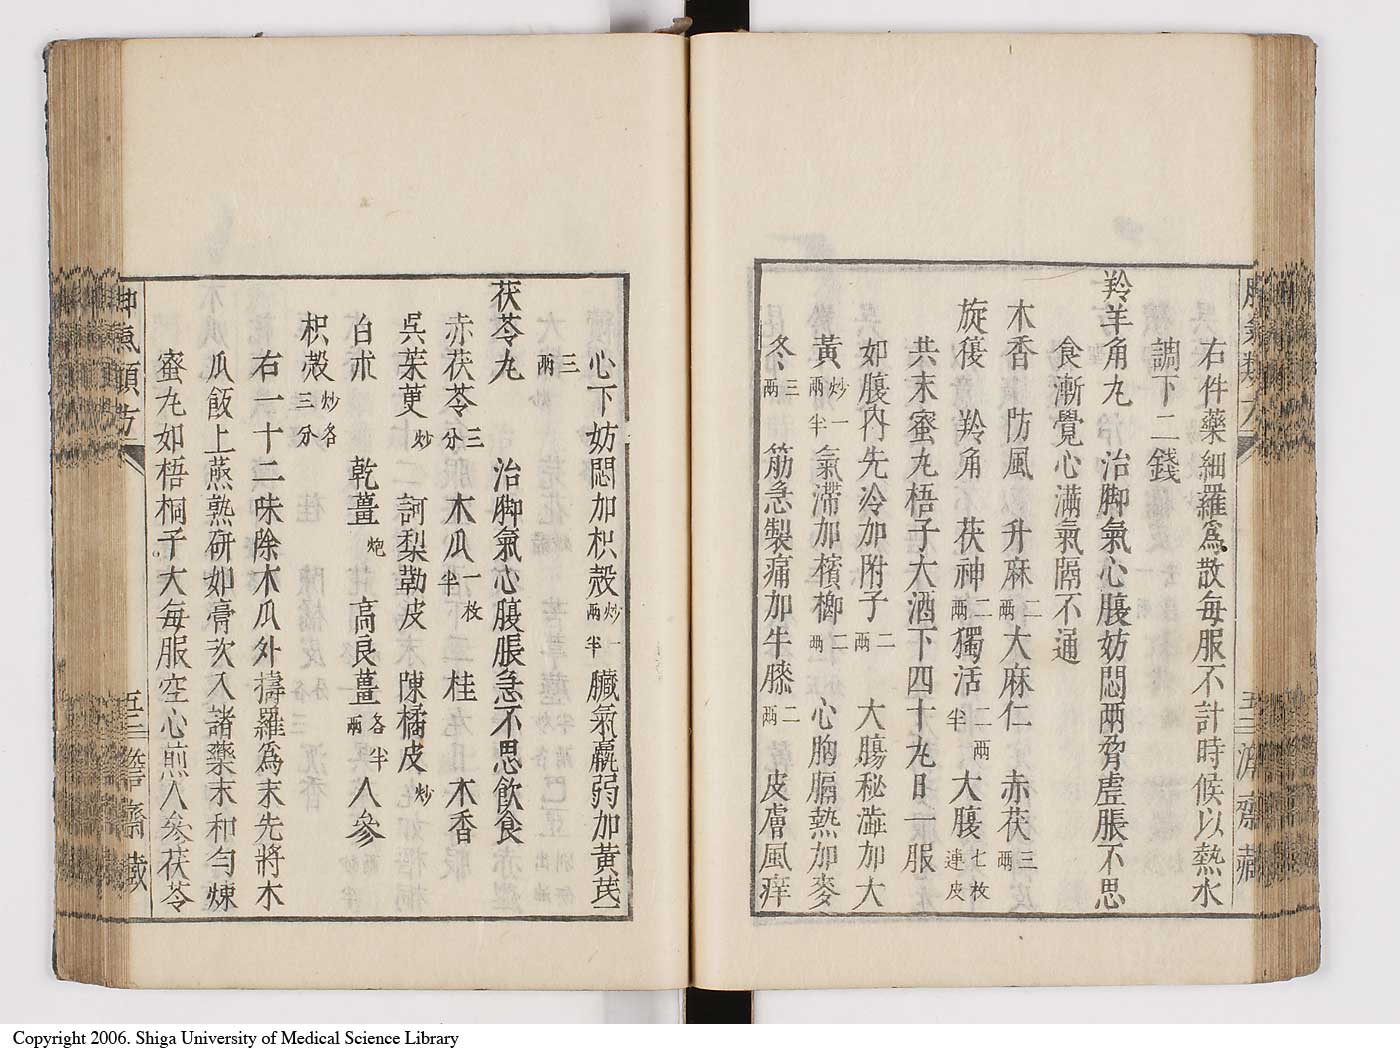 右件藥細羅爲散每服不計時候以熱水
調下二錢
羚羊角丸 治脚氣心腹妨悶兩脅虛脹不思
食漸覺心滿氣隔不通
木香 防風 升麻二兩 大麻仁 赤茯三兩
旋覆 羚角 茯神二兩 獨活二兩半 大腹七枚連皮
共末蜜丸梧子大酒下四十丸日一服
如腹內先冷加附子二兩 大腸秘澁加大
黃炒一兩半 氣滯加檳榔二兩 心胸膈熱加麥
冬三兩 筋急製痛加牛膝二兩 皮膚風痒
心下妨悶加枳殼炒一兩半 臟氣羸弱加黃芪
三兩
茯苓丸 治脚氣心腹脹急不思飲食
赤茯苓三分 木瓜一枚半 桂 木香
吳茱萸炒 訶梨勒皮 陳橘皮炒
白朮 乾薑炮 高良薑各半兩 人參
枳殼炒各三分
右一十二味除木瓜外擣羅爲末先將木
瓜飯上蒸熟研如膏次入諸藥末和勻煉
蜜丸如梧桐子大每服空心煎人參茯苓
脚氣類方
Copyright 2006. Shiga University of Medical Science Library